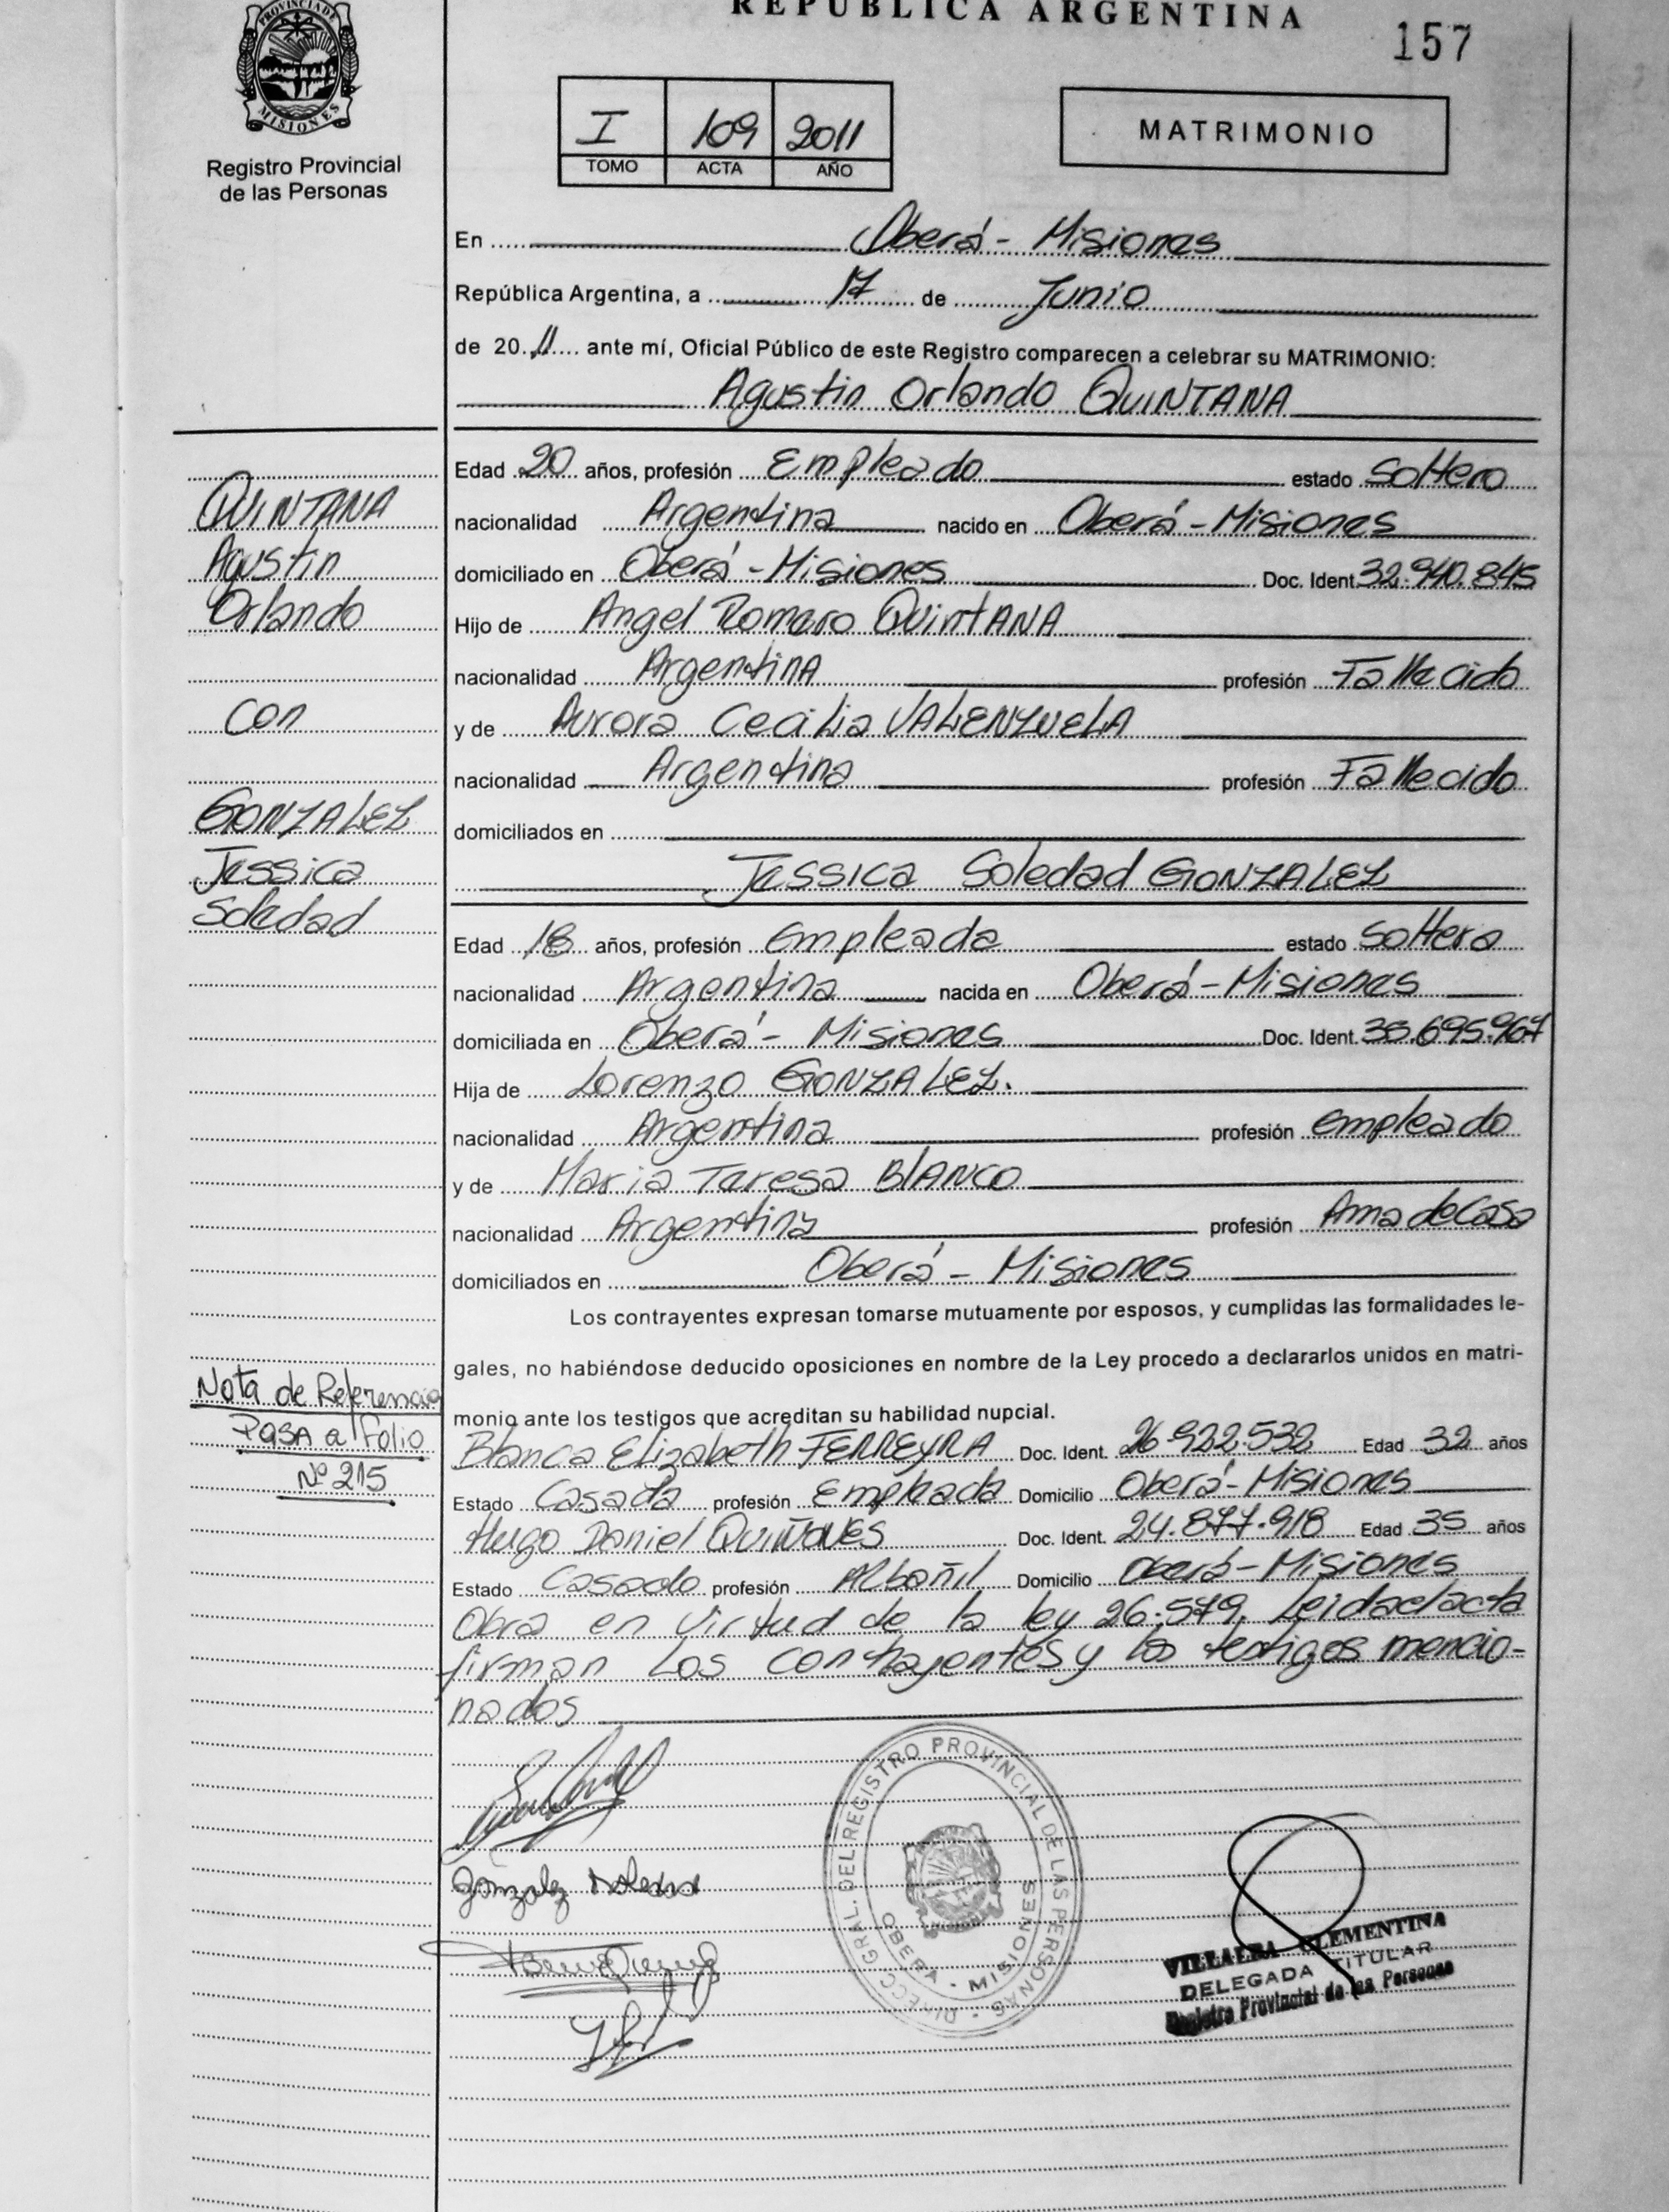 REPUBLICA ARGENTINA
157
PROVINCIA DE
MISIONES
Registro Provincial
de las Personas
I 109 2011
TOMO ACTA AÑO
MATRIMONIO
En Oberá - Misiones
República Argentina, a 17 de Junio
de 20 11 ante mí, Oficial Público de este Registro comparecen a celebrar su MATRIMONIO:
Agustin Orlando QUINTANA
Edad 20 años, profesión Empleado estado Soltero
nacionalidad Argentina nacido en Oberá - Misiones
domiciliado en Oberá - Misiones Doc. Ident. 32.940.845
Hijo de Angel Romero QUINTANA
nacionalidad Argentina profesión Fallecido
y de Aurora Cecilia VALENZUELA
nacionalidad Argentina profesión Fallecido
domiciliados en
Jessica Soledad GONZALEZ
Edad 18 años, profesión Empleada estado Soltera
nacionalidad Argentina nacida en Oberá - Misiones
domiciliada en Oberá - Misiones Doc. Ident. 38.695.967
Hija de Lorenzo GONZALEZ.
nacionalidad Argentina profesión empleado
y de Maria Teresa BLANCO
nacionalidad Argentina profesión Ama de Casa
domiciliados en Oberá - Misiones
Los contrayentes expresan tomarse mutuamente por esposos, y cumplidas las formalidades le-
gales, no habiéndose deducido oposiciones en nombre de la Ley procedo a declararlos unidos en matri-
monio ante los testigos que acreditan su habilidad nupcial.
Blanca Elizabeth FERREYRA Doc. Ident. 26.922.532 Edad 32 años
Estado Casada profesión Empleada Domicilio Oberá - Misiones
Hugo Daniel QUIÑONES Doc. Ident. 24.877.918 Edad 35 años
Estado Casado profesión Albañil Domicilio Oberá - Misiones
Obra en virtud de la ley 26.579. Leida el acta
firman los contrayentes y los testigos mencio-
nados
QUINTANA
Agustin
Orlando
con
GONZALEZ
Jessica
Soledad
Nota de Referencia
PASA a folio
Nº 215
Gonzalez
DIRECC GRAL. DEL REGISTRO PROVINCIAL DE LAS PERSONAS
OBERA - MISIONES
VILLALBA CLEMENTINA
DELEGADA TITULAR
Registro Provincial de las Personas